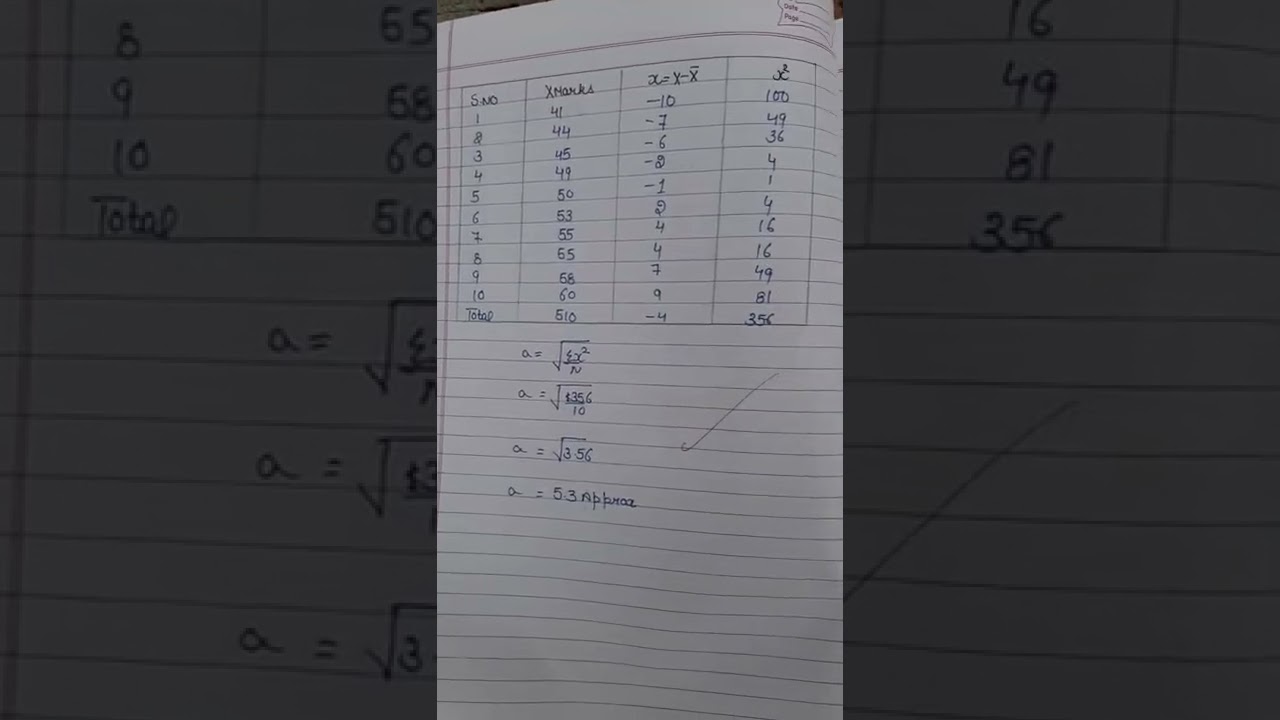 Date
Page
S.NO X Marks x=X-X̄ x²
1 41 -10 100
8 44 -7 49
3 45 -6 36
4 49 -2 4
5 50 -1 1
6 53 2 4
7 55 4 16
8 55 4 16
9 58 7 49
10 60 9 81
Total 510 -4 356
a = √Σx²/N
a = √356/10
a = √3.56
a = 5.3 Approx